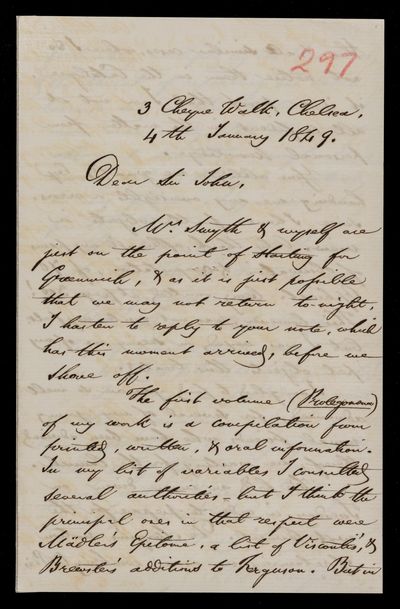 297
3 Cheyne Walk, Chelsea,
4th January 1849.
Dear Sir John,
Mrs Smyth & myself are
just on the point of starting for
Greenwich, & as it is just possible
that we may not return to-night,
I hasten to reply to your note, which
has this moment arrived, before we
shove off.
The first volume (Prolegomena)
of my work is a compilation from
printed, written, & oral information.
In my list of variables I consulted
several authorities - but I think the
principal ones in that respect were
Mädler's Epitome, a list of Viscontis, &
Brewster's additions to Ferguson. But in